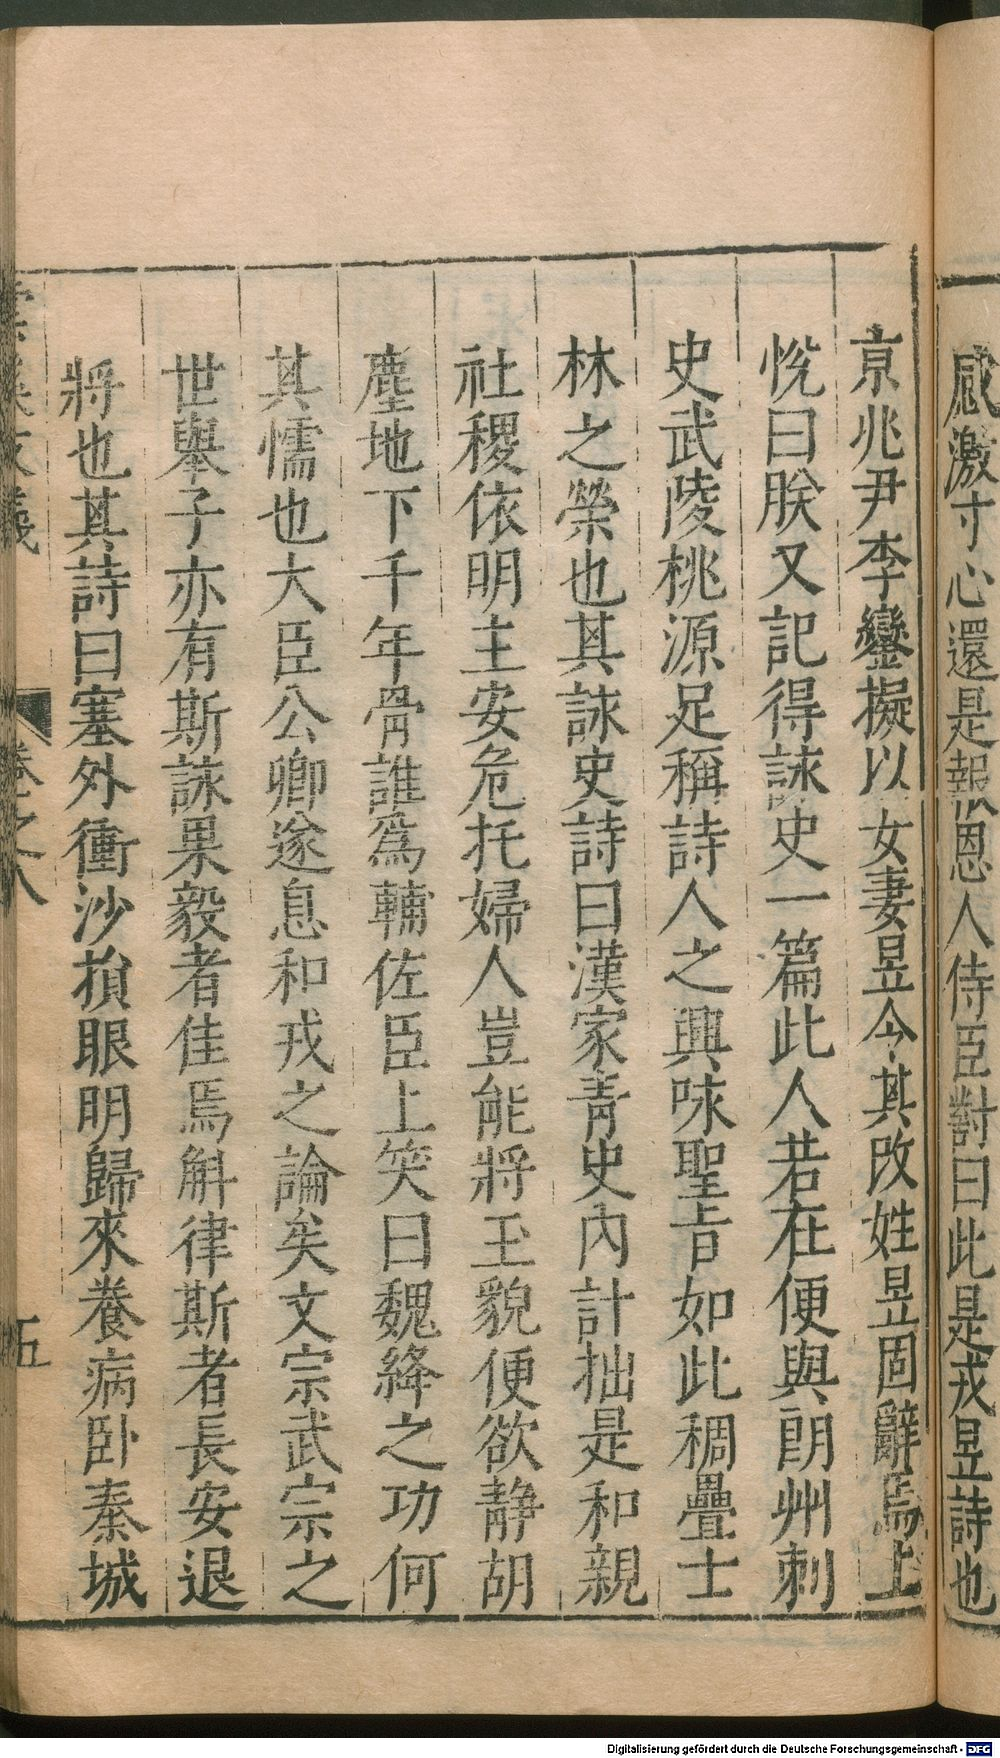 感激寸心還是報恩人侍臣對曰此是戎昱詩也
京兆尹李鑾擬以女妻昱令其改姓昱固辭焉上
悅曰朕又記得詠史一篇此人若在便與朗州刺
史武陵桃源足稱詩人之興咏聖旨如此稠疊士
林之榮也其詠史詩曰漢家青史內計拙是和親
社稷依明主安危托婦人豈能將玉貌便欲静胡
塵地下千年骨誰爲輔佐臣上笑曰魏絳之功何
其懦也大臣公卿遂息和戎之論矣文宗武宗之
世舉子亦有斯詠果毅者佳焉斛律斯者長安退
將也其詩曰塞外衝沙損眼明歸來養病卧秦城
雲溪友議 卷之八 五
Digitalisierung gefördert durch die Deutsche Forschungsgemeinschaft - DFG